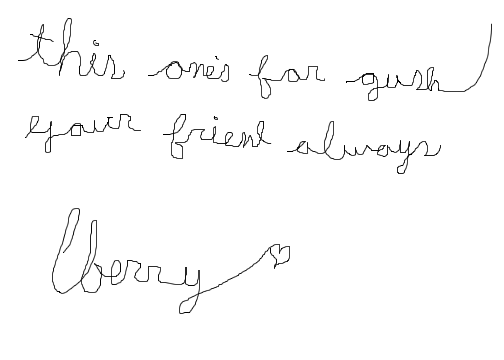 this one's for gush
your friend always
lberry